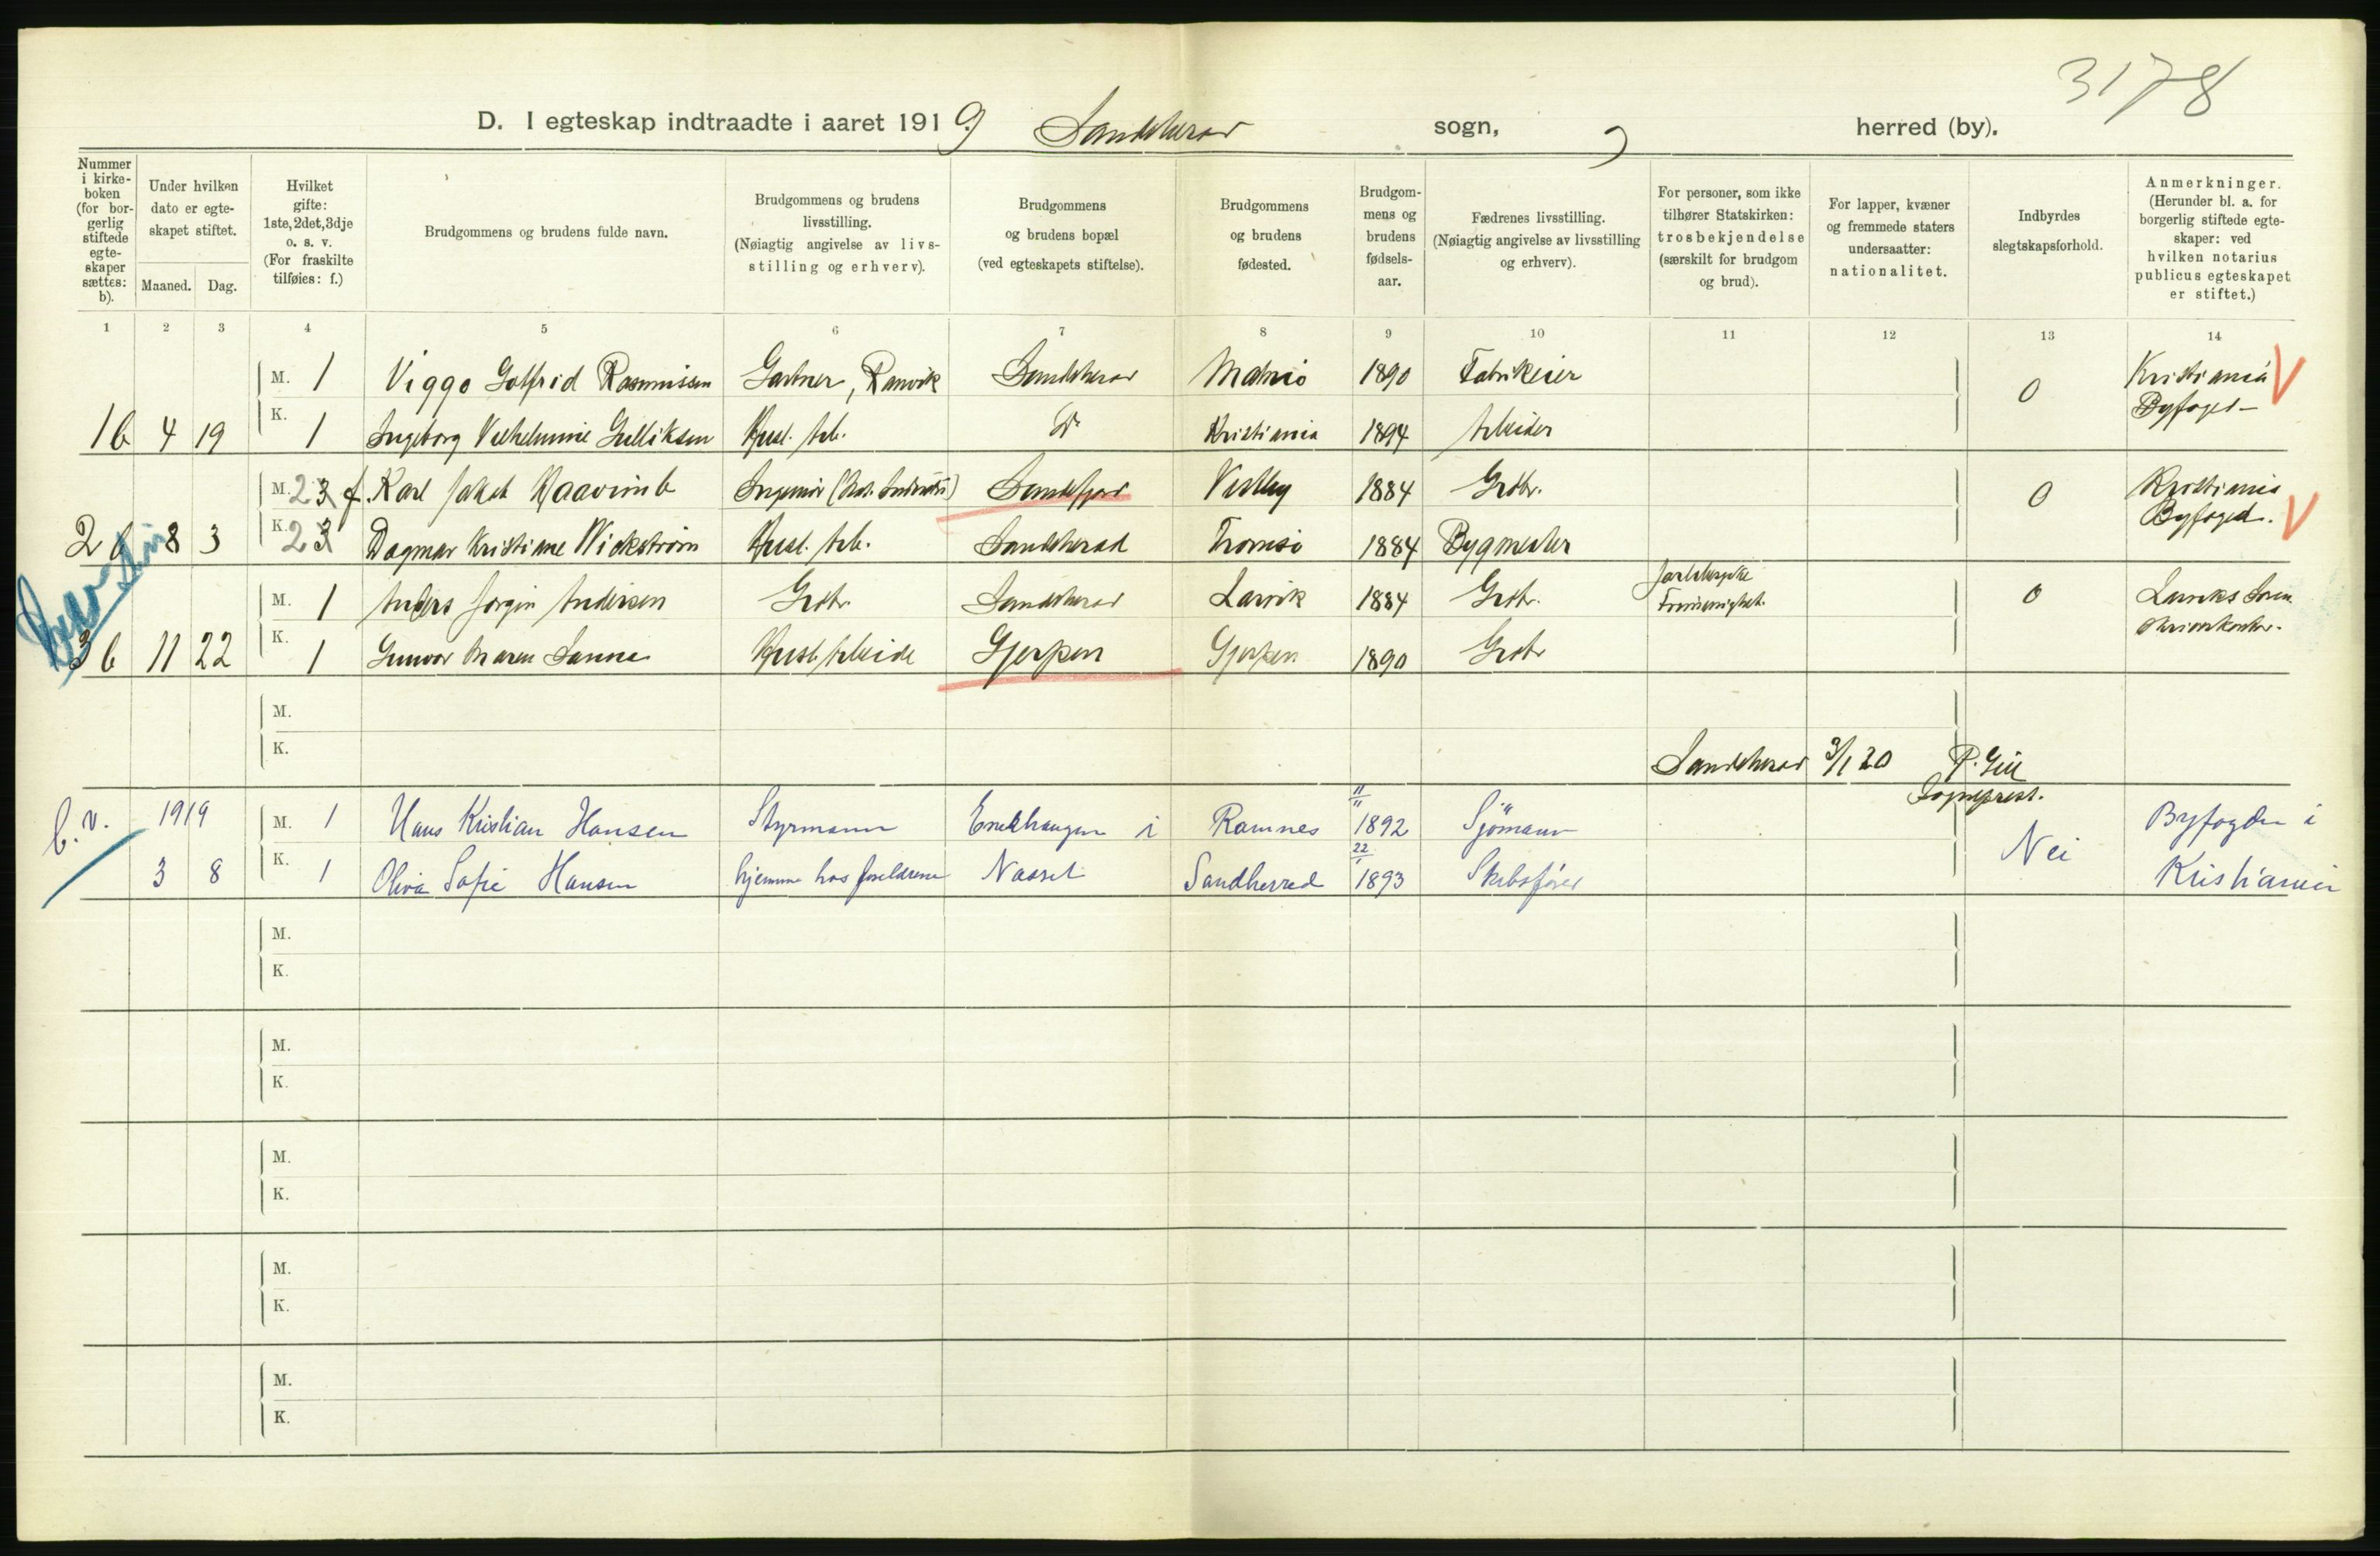 3178
D. I egteskap indtraadte i aaret 1919 Sandeherad sogn, herred (by).
Nummer i kirkeboken (for borgerlig stiftede egteskaper sættes: b).
Under hvilken dato er egteskapet stiftet.
Maaned. Dag.
Hvilket gifte: 1ste, 2det, 3dje o. s. v. (For fraskilte tilføies: f.)
Brudgommens og brudens fulde navn.
Brudgommens og brudens livsstilling. (Nøiagtig angivelse av livsstilling og erhverv).
Brudgommens og brudens bopæl (ved egteskapets stiftelse).
Brudgommens og brudens fødested.
Brudgommens og brudens fødselsaar.
Fædrenes livsstilling. (Nøiagtig angivelse av livsstilling og erhverv).
For personer, som ikke tilhører Statskirken: trosbekjendelse (særskilt for brudgom og brud).
For lapper, kvæner og fremmede staters undersaatter: nationalitet.
Indbyrdes slegtskapsforhold.
Anmerkninger. (Herunder bl. a. for borgerlig stiftede egteskaper: ved hvilken notarius publicus egteskapet er stiftet.)
1 2 3 4 5 6 7 8 9 10 11 12 13 14
M. 1 Viggo Gotfrid Rasmussen Gartner, Ranvik Sandeherad Malmö 1890 Fabrikeier 0 Kristiania Byfoged
1 b 4 19 K. 1 Ingeborg Vilhelmine Gulliksen Husl. Arb. Do Kristiania 1894 Arbeider
M. 2 3 f. Karl Jakob Haavimb Ingeniør Sandefjord Vestby 1884 Grdbr. 0 Kristiania Byfoged.
2 b 8 3 K. 2 3 Dagmar Kristiane Wickstrøm Husl. Arb. Sandeherad Tromsø 1884 Bygmester
M. 1 Anders Jørgen Andersen Grdbr. Sandeherad Larvik 1884 Grdbr. Jarlsbergske Frimenighet. 0 Larviks Soren skriverkontor.
3 b 11 22 K. 1 Gunvor Maren Sanne Husl. Arbeide Gjerpen Gjerpen 1890 Grdbr
M.
K.
Sandeherad 3/1 20 P. Gill
Sogneprest.
b. v. 1919 M. 1 Hans Kristian Hansen Styrmann Enekhaugen i Ramnes 11/11 1892 Sjömann Nei Byfogden i
3 8 K. 1 Olivia Sofie Hansen hjemme hos foreldrene Nøtterø Sandherred 22/1 1893 Skibsfører Kristiania
M.
K.
M.
K.
M.
K.
M.
K.
M.
K.